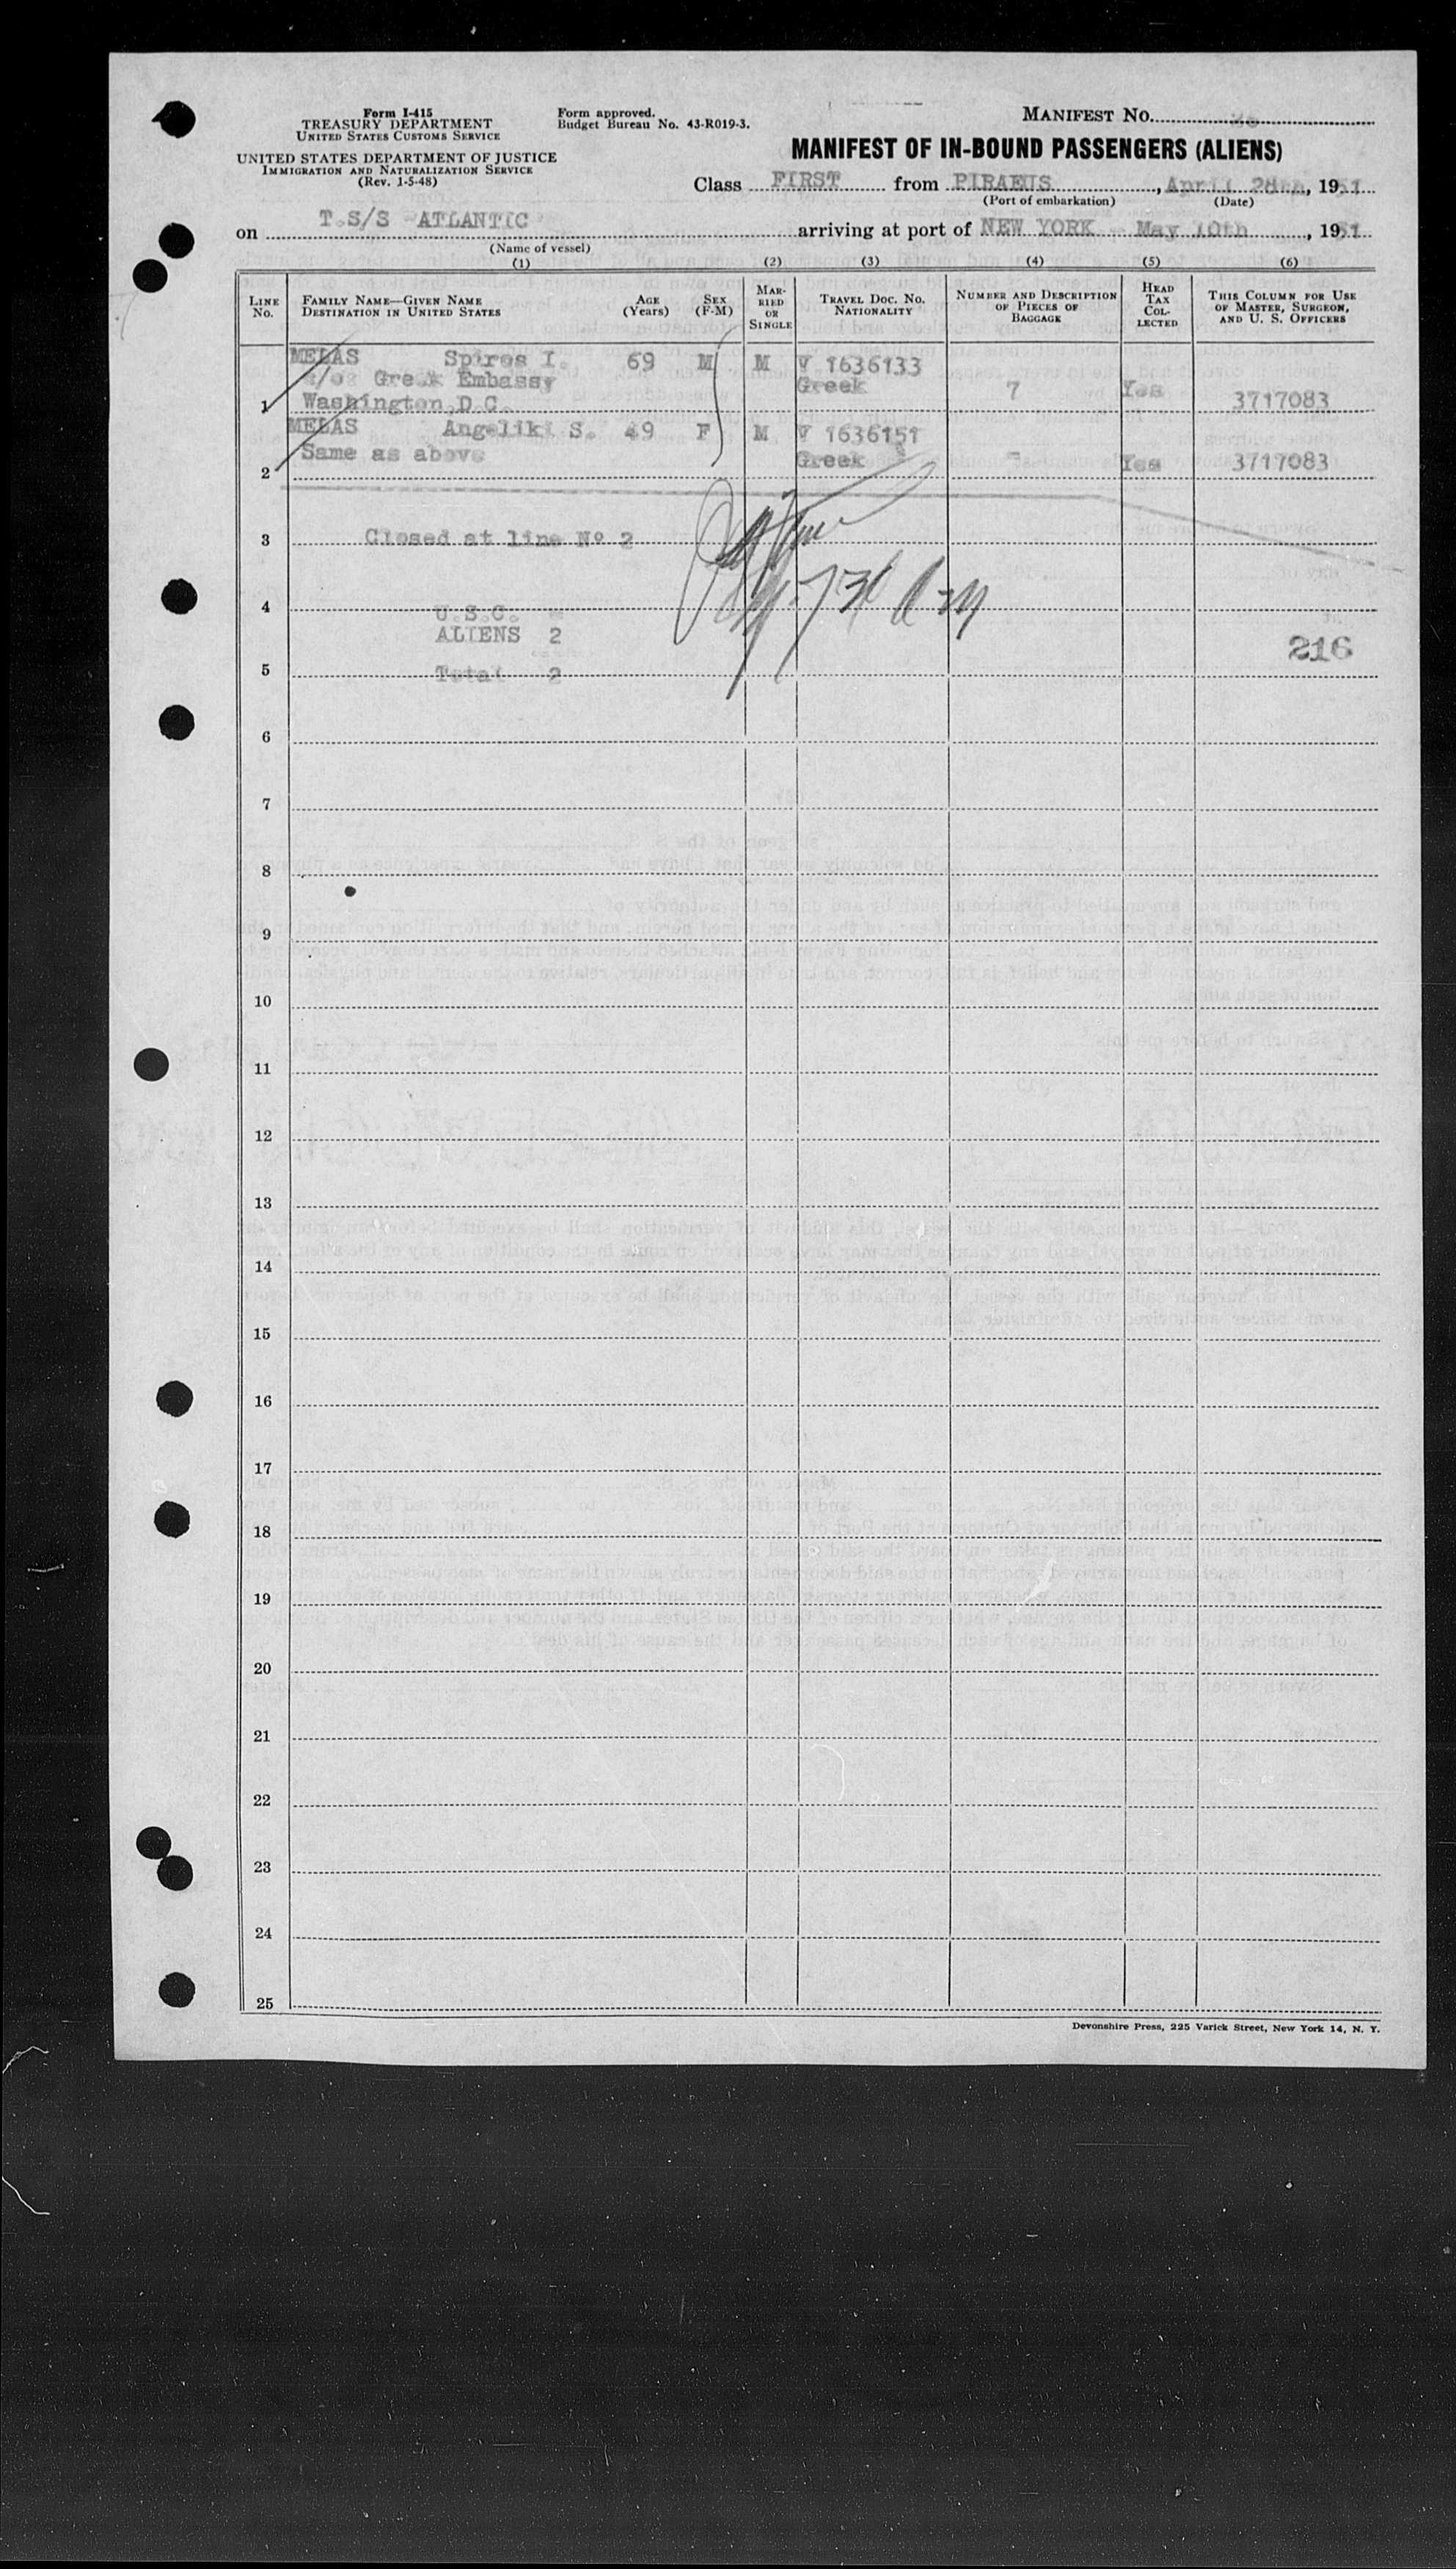 Form I-415
TREASURY DEPARTMENT
UNITED STATES CUSTOMS SERVICE
UNITED STATES DEPARTMENT OF JUSTICE
IMMIGRATION AND NATURALIZATION SERVICE
(Rev. 1-5-48)
Form approved.
Budget Bureau No. 43-R019-3.
MANIFEST NO.
MANIFEST OF IN-BOUND PASSENGERS (ALIENS)
Class FIRST from PIRAEUS, April 28th, 1951
(Port of embarkation) (Date)
on T.S/S ATLANTIC arriving at port of NEW YORK - May 10th, 1951
(Name of vessel)
(1) (2) (3) (4) (5) (6)
LINE NO. FAMILY NAME—GIVEN NAME DESTINATION IN UNITED STATES AGE (Years) SEX (F-M) MARRIED OR SINGLE TRAVEL DOC. NO. NATIONALITY NUMBER AND DESCRIPTION OF PIECES OF BAGGAGE HEAD TAX COLLECTED THIS COLUMN FOR USE OF MASTER, SURGEON, AND U. S. OFFICERS
MELAS Spiros I. 69 M M V 1636133
c/o: Greek Embassy Greek 7 Yes
1 Washington,D.C. 3717083
MELAS Angeliki S. 49 F M V 1636151
Same as above Greek - Yes 3717083
2
3 Closed at line Nº 2
4
U.S.C. -
ALIENS 2
216
5 Total 2
6
7
8
9
10
11
12
13
14
15
16
17
18
19
20
21
22
23
24
25
Devonshire Press, 225 Varick Street, New York 14, N. Y.